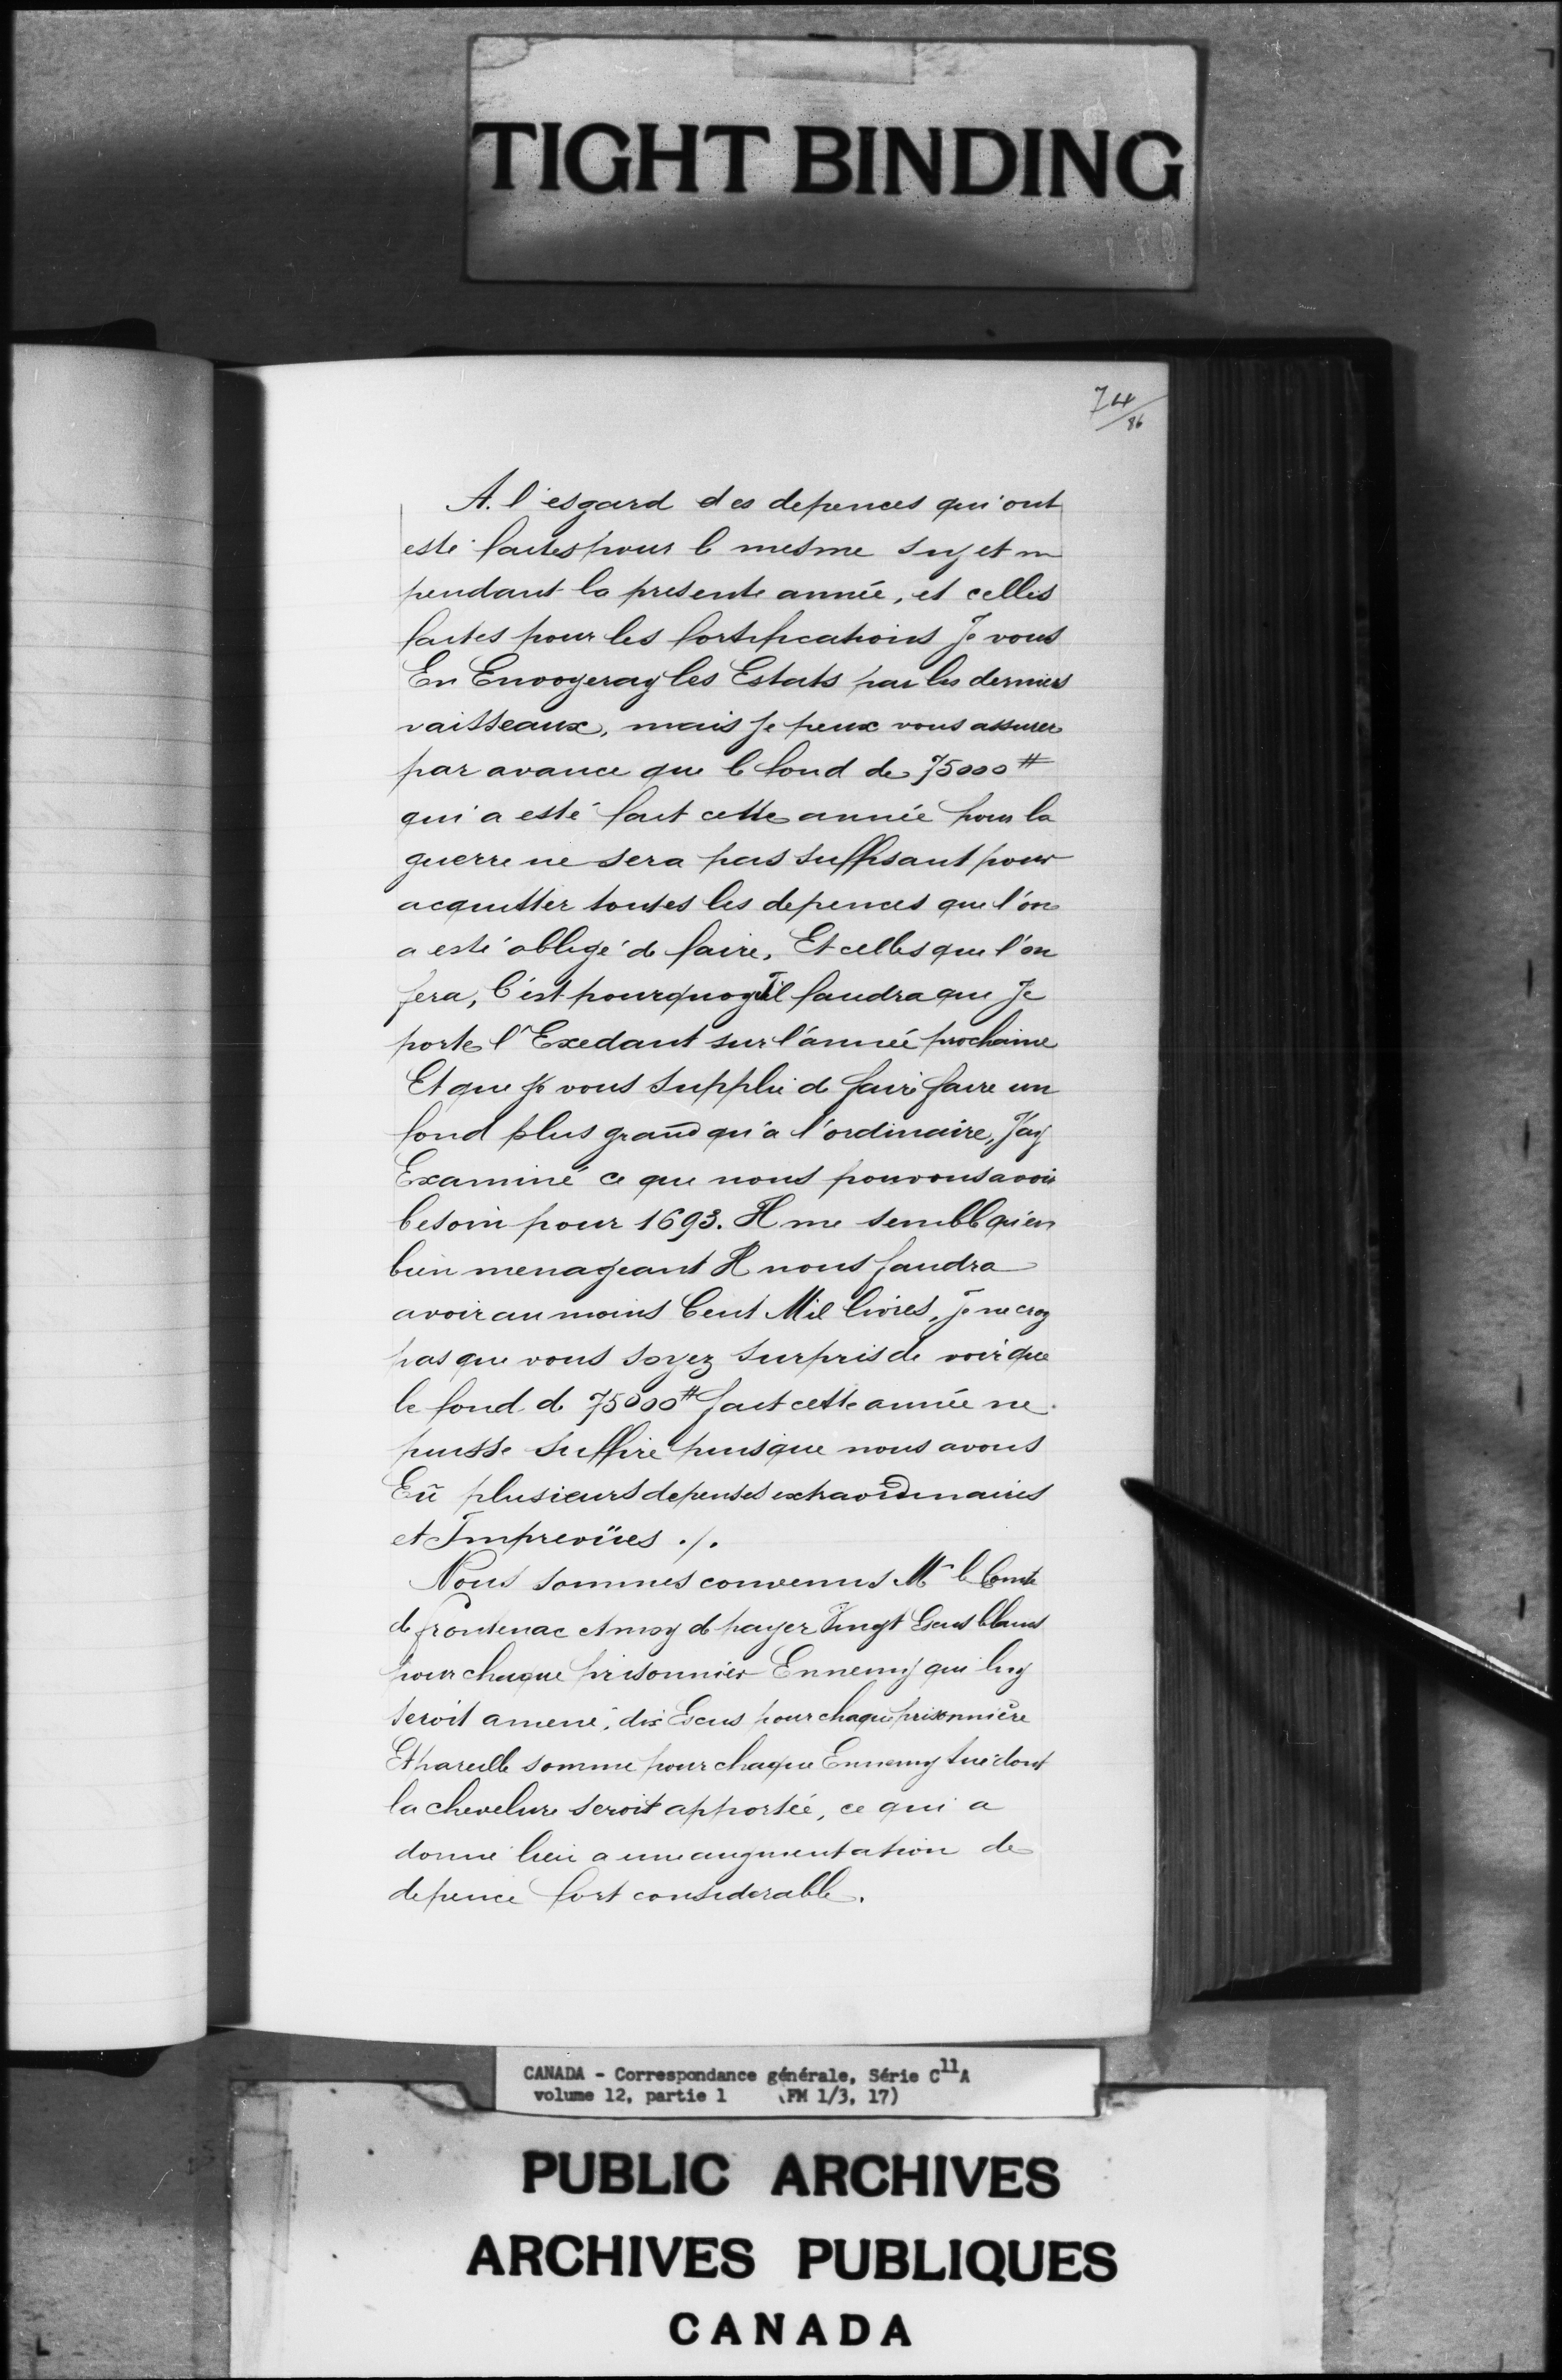 TIGHT BINDING
74/86
A. l'esgard des depences qui ont
esté faites pour le mesme sujet
pendant la presente année, et celles
faites pour les fortifications Je vous
En Envoyeray les Estats par les derniers
vaisseaux, mais je peux vous assurer
par avance que le fond de 75000 ₶
qui a esté fait cette année pour la
guerre ne sera pas suffisant pour
acquitter toutes les depences que l'on
a esté obligé de faire, Et celles que l'on
fera, C'est pourquoy Il faudra que Je
porte l'Exedant sur l'année prochaine
Et que Je vous supplie de faire faire un
fond plus grand qu'a l'ordinaire, J'ay
Examiné ce que nous pouvons avoir
besoin pour 1693. Il me semble qu'en
bien menageant Il nous faudra
avoir au moins Cent Mil livres, Je ne croy
pas que vous soyez surpris de voir que
le fond de 75000₶ fait cette année ne
puisse suffire puisque nous avons
Eü plusieurs depenses extraordinaires
et Imprevües ./.
Nous sommes convenus Mr le Comte
de frontenac et moy de payer Vingt Escus blancs
pour chaque prisonnier Ennemy qui luy
seroit amené, dix Escus pour chaque prisonnière
Et pareille somme pour chaque Ennemy tué dont
la chevelure seroit apportée, ce qui a
donné lieu a une augmentation de
depence fort considerable.
CANADA - Correspondance générale, Série C11A
volume 12, partie 1 (FM 1/3, 17)
PUBLIC ARCHIVES
ARCHIVES PUBLIQUES
CANADA